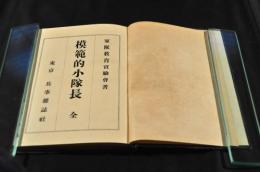 軍隊教育實驗叢書
模範的小隊長 全
東京 兵事雜誌社